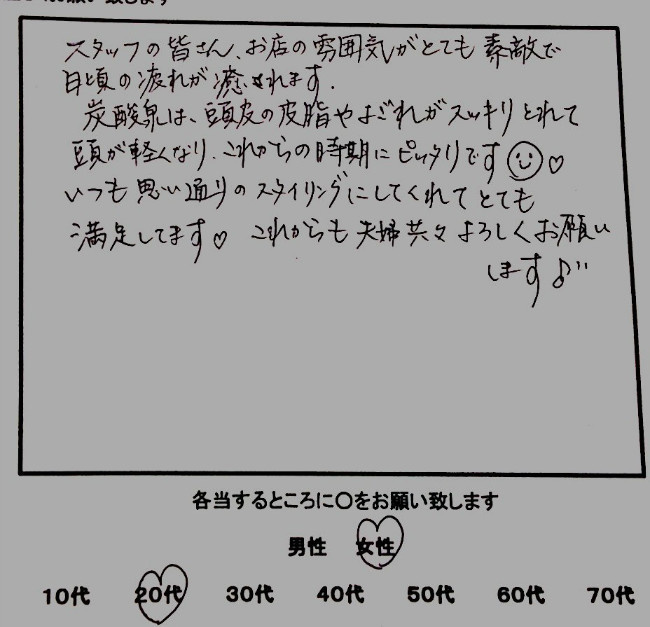 お願い致します
スタッフの皆さん、お店の雰囲気がとても素敵で
日頃の疲れが癒されます.
炭酸泉は、頭皮の皮脂やよごれがスッキリとれて
頭が軽くなり、これからの時期にピッタリです☺♡
いつも思い通りのスタイリングにしてくれてとても
満足してます♡ これからも夫婦共々よろしくお願い
します♪''
各当するところに〇をお願い致します
男性 女性
10代 20代 30代 40代 50代 60代 70代